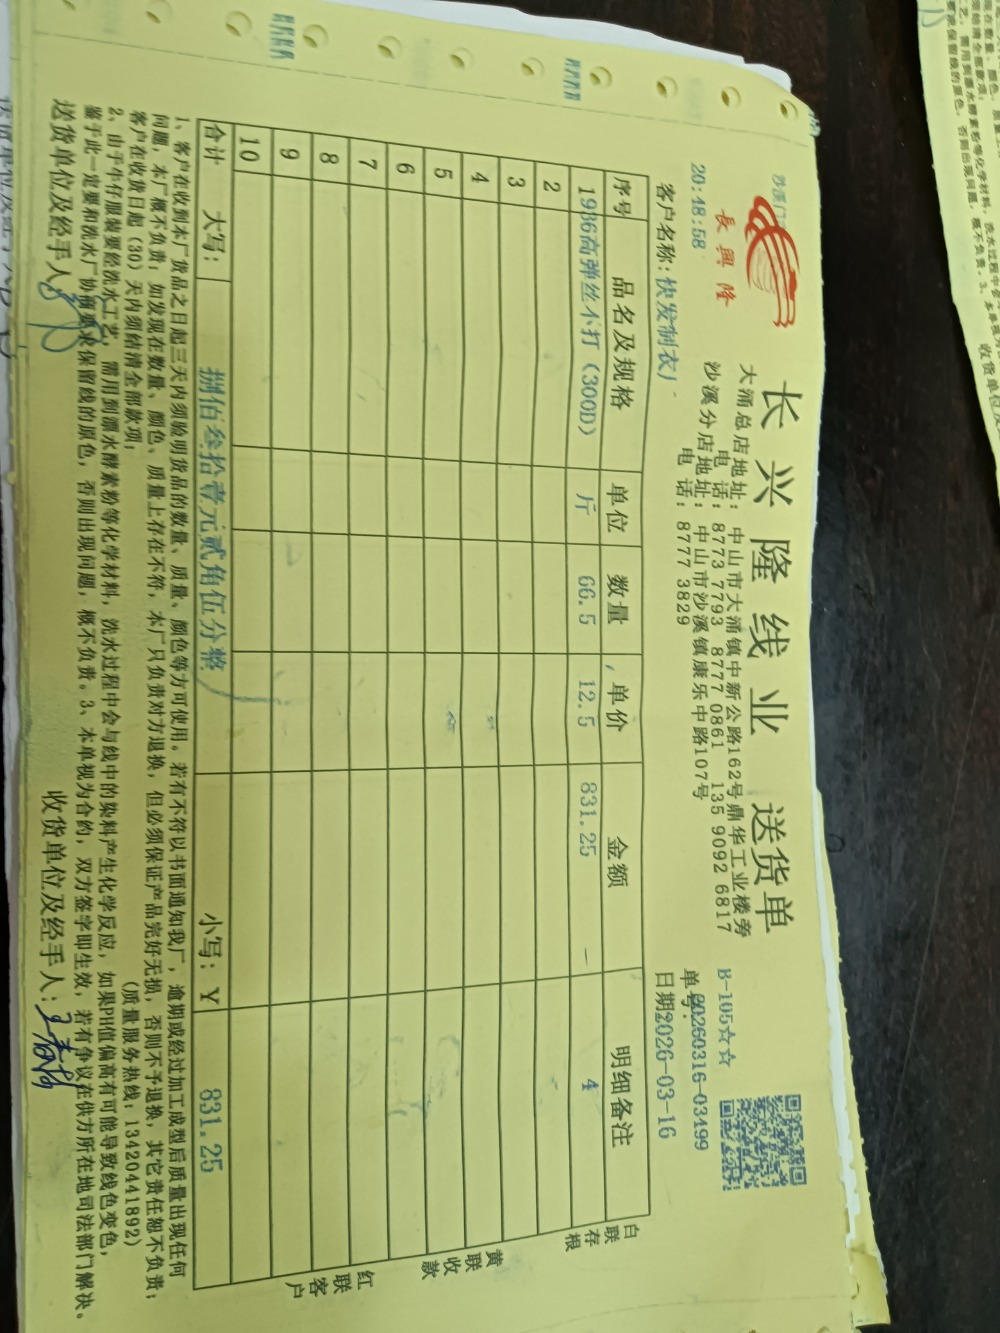 沙溪门
長興隆
20:48:58
长兴隆线业 送货单
大涌总店地址: 中山市大涌镇中新公路162号鼎华工业楼旁
电 话: 8773 7793 8777 0861 135 9092 6817
沙溪分店地址: 中山市沙溪镇康乐中路107号
电 话: 8777 3829
B-105☆☆
单号:20260316-03499
客户名称:快发制衣厂
日期2026-03-16
序号 品名及规格 单位 数量 单价 金额 明细备注
1 936高弹丝不打(300D) 斤 66.5 12.5 831.25 4
2
3
4
5
6
7
8
9
10
合计 大写: 捌佰叁拾壹元贰角伍分整 小写: ¥ 831.25
白联存根
黄联收款
红联客户
1、客户在收到本厂货品之日起三天内须验明货品的数量、质量、颜色等方可使用。若有不符以书面通知我厂,逾期或经过加工成型后质量出现任何
问题,本厂概不负责;如发现在数量、颜色、质量上存在不符,本厂只负责对方退换,但必须保证产品完好无损,否则不予退换,其它责任恕不负责;
客户在收货日起(30)天内须结清全部款项; (质量服务热线:13420441892)
2、由于牛仔服装要经洗水工艺,需用到漂水酵素粉等化学材料,洗水过程中会与线中的染料产生化学反应,如果PH值偏高有可能导致线色变色,
鉴于此一定要和洗水厂协商要求保留线的原色,否则出现问题,概不负责。3、本单视为合约,双方签字即生效,若有争议在供方所在地司法部门解决。
送货单位及经手人: 收货单位及经手人: